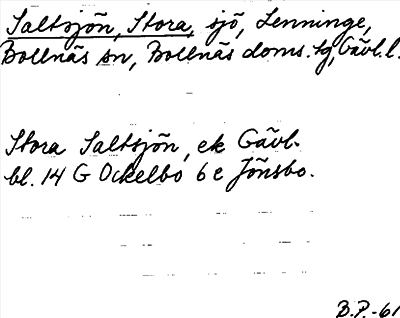 Saltsjön, Stora, sjö, Lenninge,
Bollnäs sn, Bollnäs doms. tg, Gävl. l.
Stora Saltsjön, ek Gävl.
bl. 14 G Ockelbo 6 e Jönsbo.
B.P.-61